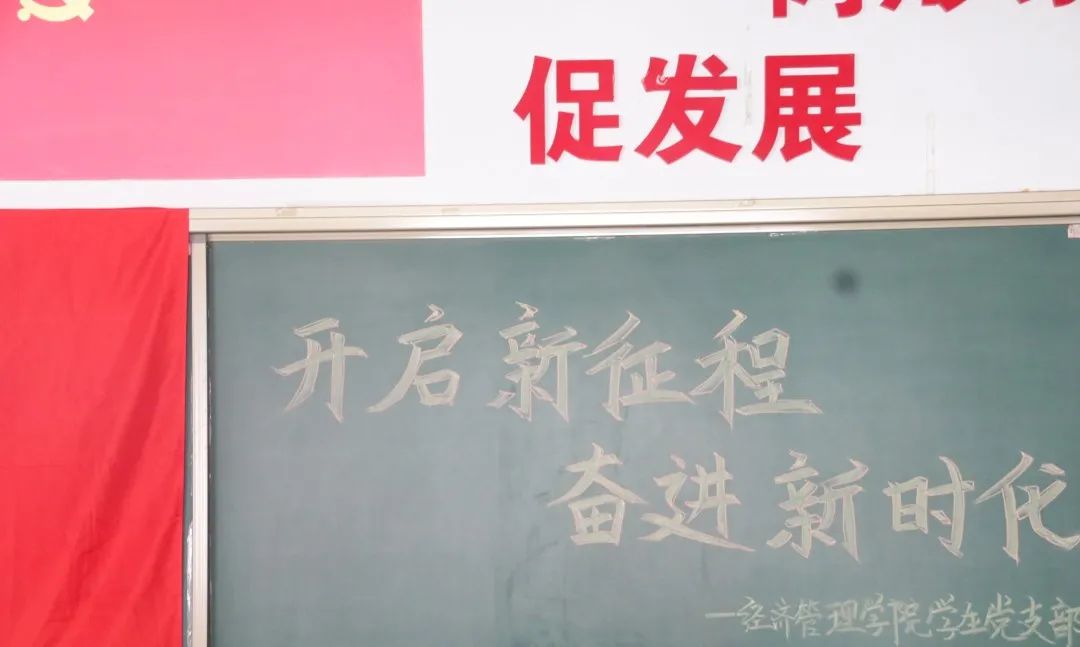 促发展
开启新征程
奋进新时代
—经济管理学院学生党支部